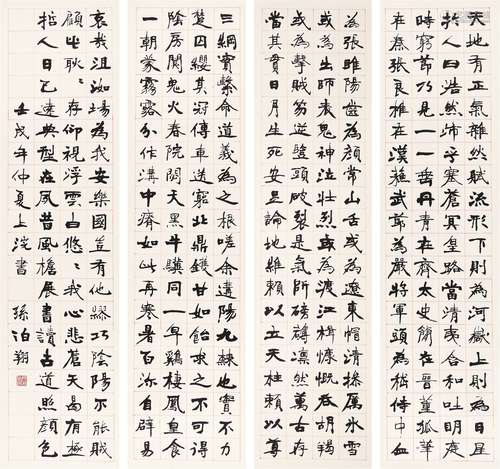 天地有正氣雜然賦流形下則為河嶽上則為日星
於人曰浩然沛乎塞蒼冥皇路當清夷含和吐明庭
時窮節乃見一一垂丹青在齊太史簡在晉董狐筆
在秦張良椎在漢蘇武節為嚴將軍頭為嵇侍中血
為張睢陽齒為顏常山舌或為遼東帽清操厲冰雪
或為出師表鬼神泣壯烈或為渡江楫慷慨吞胡羯
或為擊賊笏逆豎頭破裂是氣所磅礴凜然萬古存
當其貫日月生死安足論地維賴以立天柱賴以尊
三綱實繫命道義為之根嗟余遘陽九隸也實不力
楚囚纓其冠傳車送窮北鼎鑊甘如飴求之不可得
陰房闃鬼火春院閟天黑牛驥同一皁雞棲鳳凰食
一朝蒙霧露分作溝中瘠如此再寒暑百沴自辟易
哀哉沮洳場為我安樂國豈有他繆巧陰陽不能賊
顧此耿〻存仰視浮雲白悠〻我心悲蒼天曷有極
哲人日已遠典型在夙昔風檐展書讀古道照顏色
壬戌年仲夏上浣書 孫泊翔